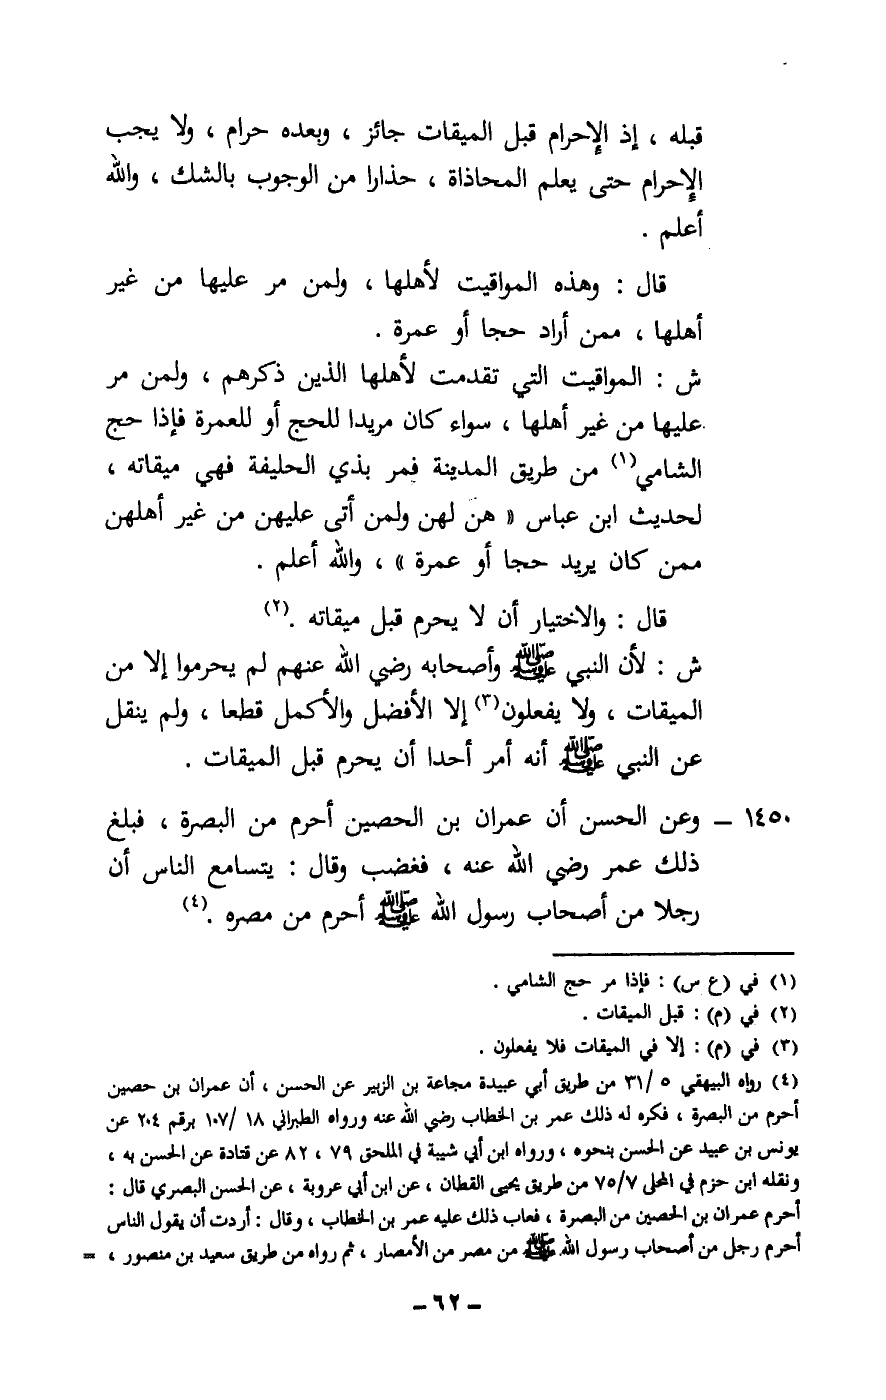 قبله ، إذ الإحرام قبل الميقات جائز ، وبعده حرام ، ولا يجب
الإحرام حتى يعلم المحاذاة ، حذارا من الوجوب بالشك ، والله
أعلم .
قال : وهذه المواقيت لأهلها ، ولمن مر عليها من غير
أهلها ، ممن أراد حجا أو عمرة .
ش : المواقيت التي تقدمت لأهلها الذين ذكرهم ، ولمن مر
عليها من غير أهلها ، سواء كان مريدا للحج أو للعمرة فإذا حج
الشامي(١) من طريق المدينة فمر بذي الحليفة فهي ميقاته ،
لحديث ابن عباس « هن لهن ولمن أتى عليهن من غير أهلهن
ممن كان يريد حجا أو عمرة » ، والله أعلم .
قال : والاختيار أن لا يحرم قبل ميقاته .(٢)
ش : لأن النبي ﷺ وأصحابه رضي الله عنهم لم يحرموا إلا من
الميقات ، ولا يفعلون(٣) إلا الأفضل والأكمل قطعا ، ولم ينقل
عن النبي ﷺ أنه أمر أحدا أن يحرم قبل الميقات .
١٤٥٠ – وعن الحسن أن عمران بن الحصين أحرم من البصرة ، فبلغ
ذلك عمر رضي الله عنه ، فغضب وقال : يتسامع الناس أن
رجلا من أصحاب رسول الله ﷺ أحرم من مصره .(٤)
(١) في (ع س) : فإذا مر حج الشامي .
(٢) في (م) : قبل الميقات .
(٣) في (م) : إلا في الميقات فلا يفعلون .
(٤) رواه البيهقي ٥ /٣١ من طريق أبي عبيدة مجاعة بن الزبير عن الحسن ، أن عمران بن حصين
أحرم من البصرة ، فكره له ذلك عمر بن الخطاب رضي الله عنه ورواه الطبراني ١٨ /١٠٧ برقم ٢٠٤ عن
يونس بن عبيد عن الحسن بنحوه ، ورواه ابن أبي شيبة في الملحق ٧٩ ، ٨٢ عن قتادة عن الحسن به ،
ونقله ابن حزم في المحلى ٧٥/٧ من طريق يحيى القطان ، عن ابن أبي عروبة ، عن الحسن البصري قال :
أحرم عمران بن الحصين من البصرة ، فعاب ذلك عليه عمر بن الخطاب ، وقال : أردت أن يقول الناس
أحرم رجل من أصحاب رسول الله ﷺ من مصر من الأمصار ، ثم رواه من طريق سعيد بن منصور ، =
– ٦٢ –